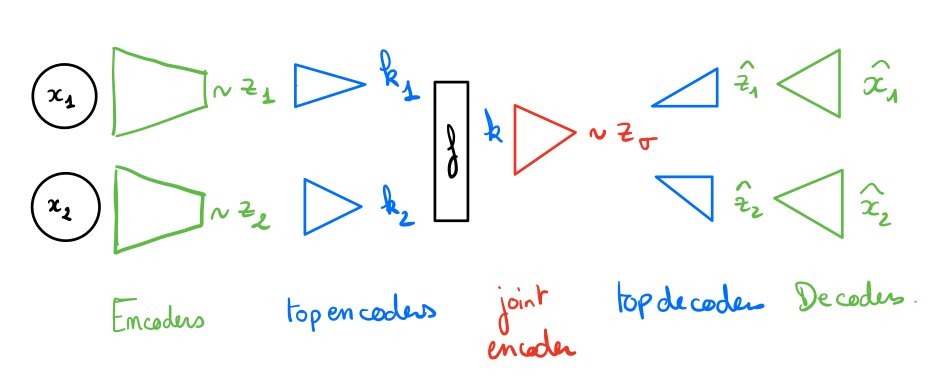 x₁ ~ z₁ k₁ ẑ₁ x̂₁
f k ~ z_σ
x₂ ~ z₂ k₂ ẑ₂ x̂₂
Encoders top encoders joint encoder top decoders Decoders.